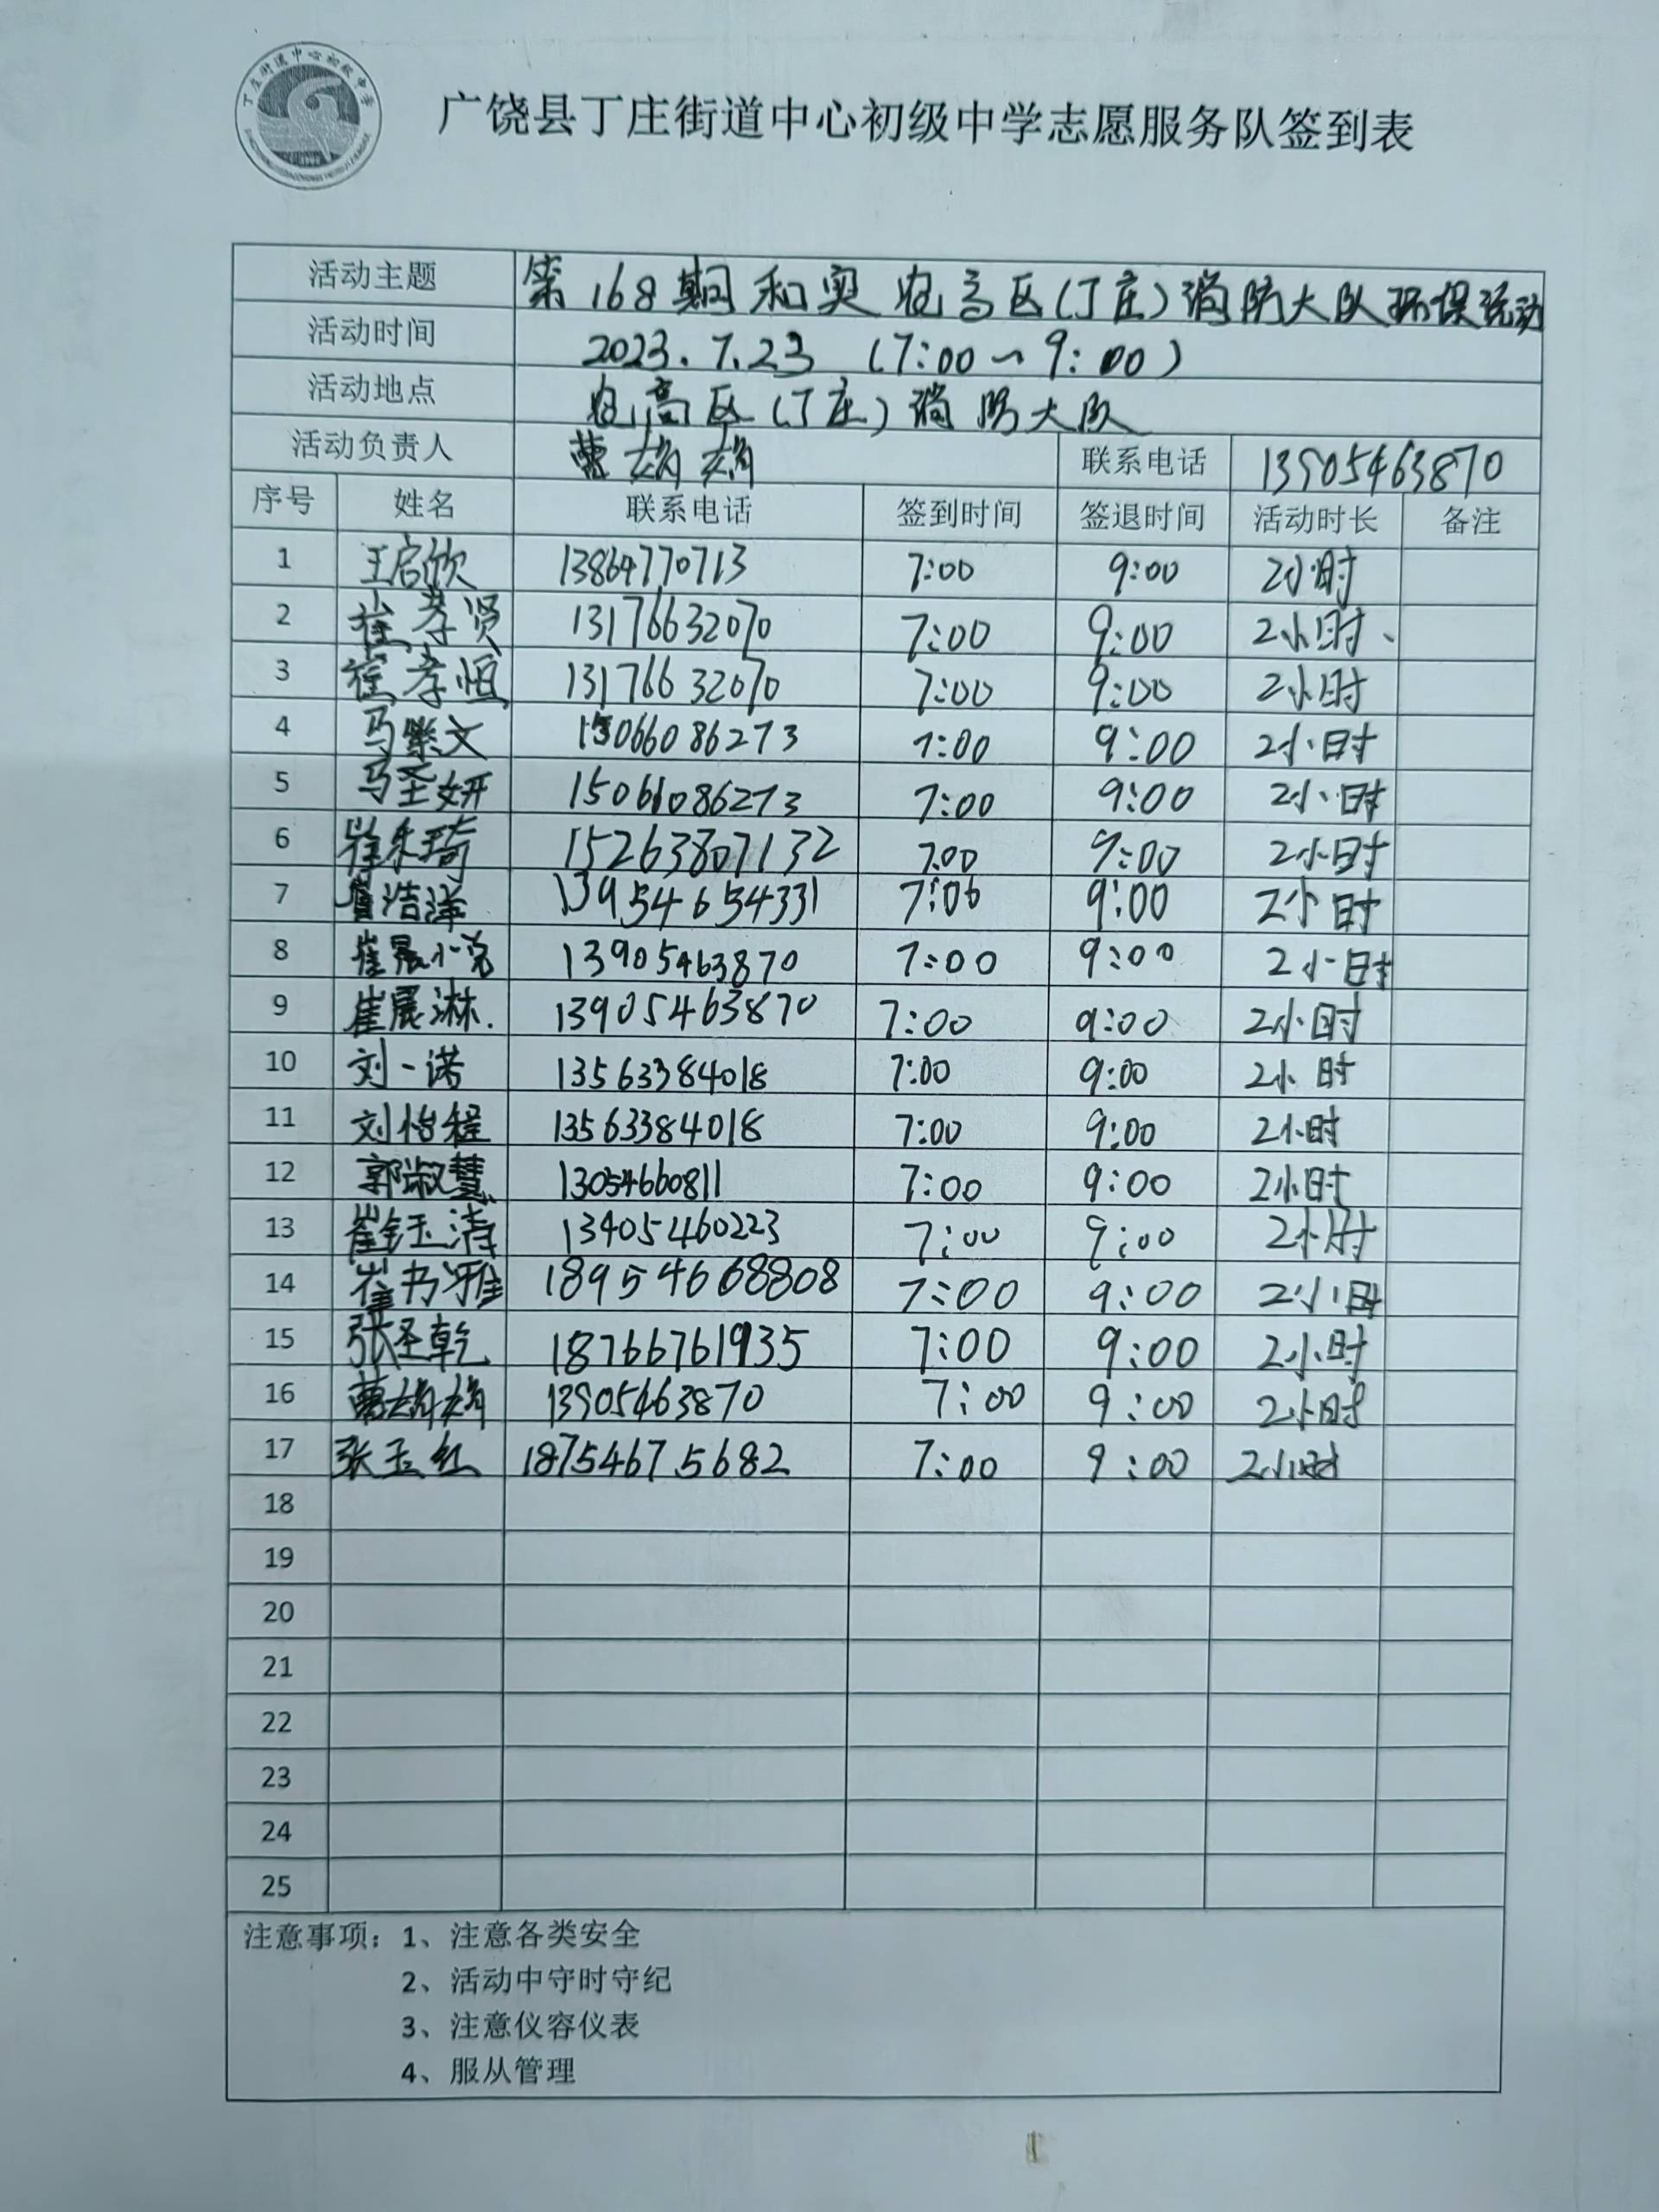 丁庄街道中心初级中学
广饶县丁庄街道中心初级中学志愿服务队签到表
活动主题 第168期和奥农高区(丁庄)消防大队环保活动
活动时间 2023.7.23 (7:00~9:00)
活动地点 农高区(丁庄)消防大队
活动负责人 曹娟娟 联系电话 13905463870
序号 姓名 联系电话 签到时间 签退时间 活动时长 备注
1 王启欣 13864770713 7:00 9:00 2小时
2 崔孝贤 13176632070 7:00 9:00 2小时、
3 崔孝恒 13176632070 7:00 9:00 2小时
4 马紫文 15066086273 7:00 9:00 2小时
5 马圣妍 15066086273 7:00 9:00 2小时
6 崔禾琦 15263807132 7:00 9:00 2小时
7 浩洋 13954654331 7:00 9:00 2小时
8 崔晨 13905463870 7:00 9:00 2小时
9 崔展淋. 13905463870 7:00 9:00 2小时
10 刘一诺 13563384018 7:00 9:00 2小时
11 刘怡程 13563384018 7:00 9:00 2小时
12 郭淑慧 13054660811 7:00 9:00 2小时
13 崔钰清 13405460223 7:00 9:00 2小时
14 崔书雅 18954668808 7:00 9:00 2小时
15 张圣乾 18766761935 7:00 9:00 2小时
16 曹娟娟 13905463870 7:00 9:00 2小时
17 张玉红 18754675682 7:00 9:00 2小时
18
19
20
21
22
23
24
25
注意事项：1、注意各类安全
2、活动中守时守纪
3、注意仪容仪表
4、服从管理